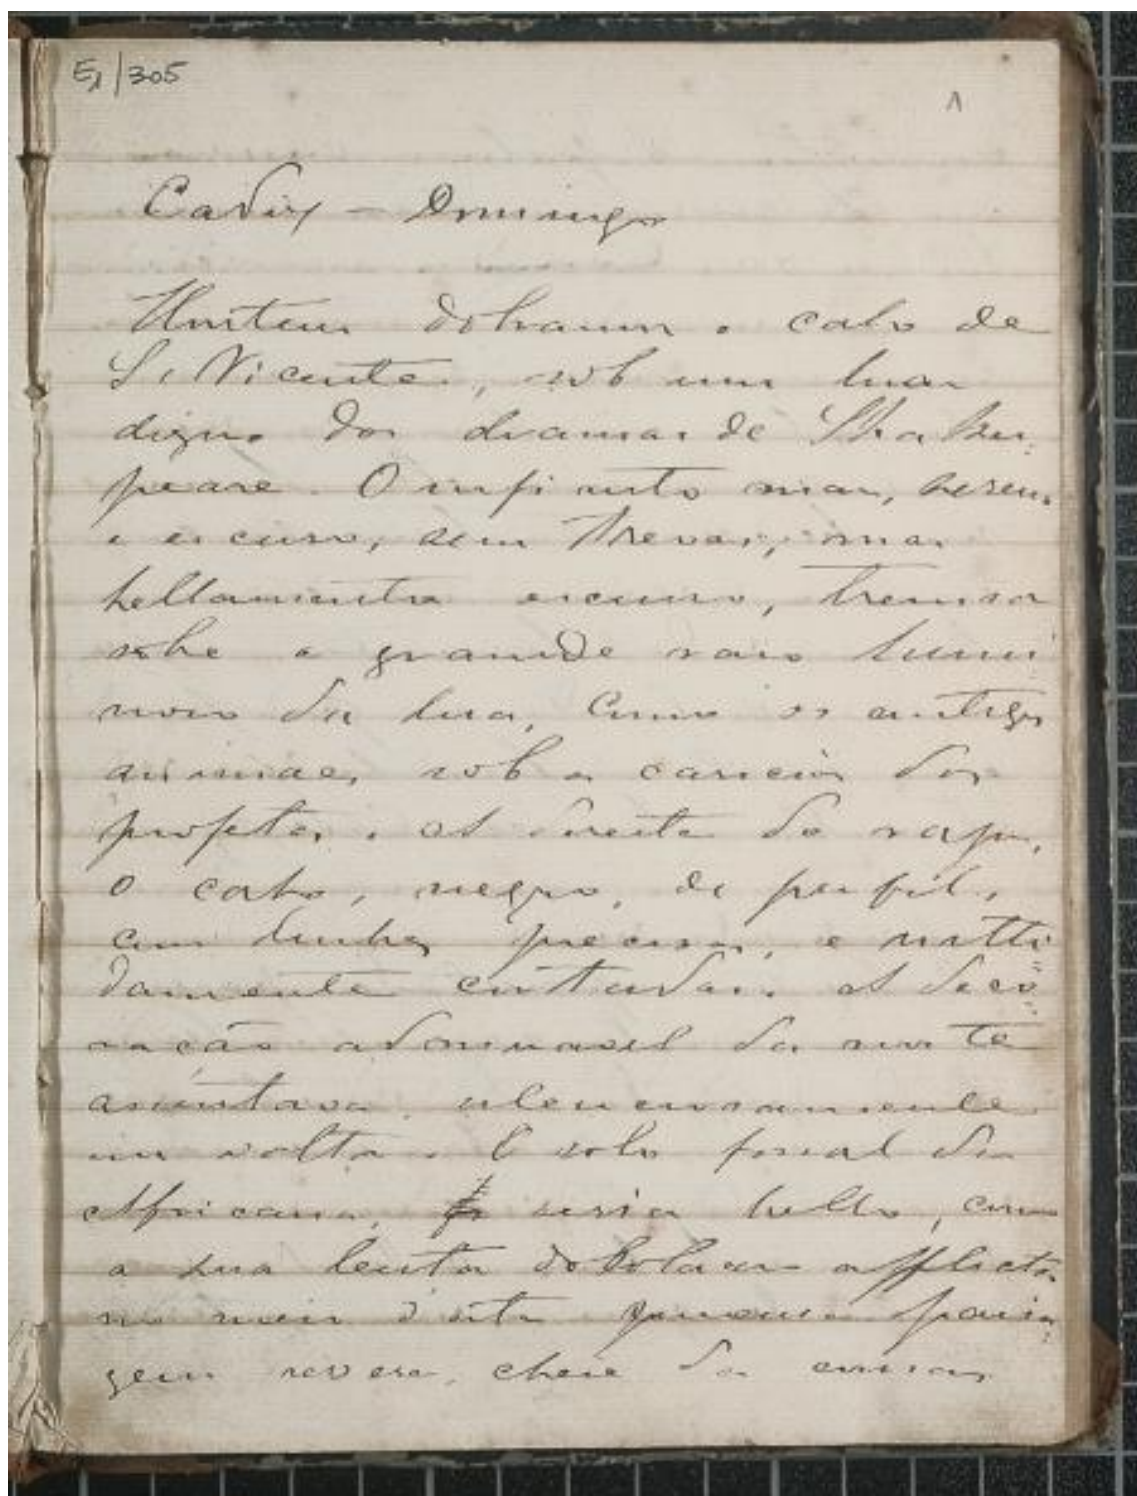 E1/305
1
Cadix – Domingo
Hontem dobramos o cabo de
S. Vicente, sob um luar
digno dos dramas de Shakes-
peare. O infinito mar, sereno
e escuro, sem trevas, mas
bellamente escuro, tremia
sobe o grande raio lumi
noso da lua, como os antigos
animaes sob a caricia dos
profetas. A direita do vapor,
o cabo, negro, de perfil,
com linhas precisas, e nitti
damente cortadas. A deco-
ração admiravel da noite
assentava silenciosamente
em volta. O solo final da
Africana, seria bello, com
a sua lenta desolação afflicta
no meio d'esta paisa-
gem severa, cheia da